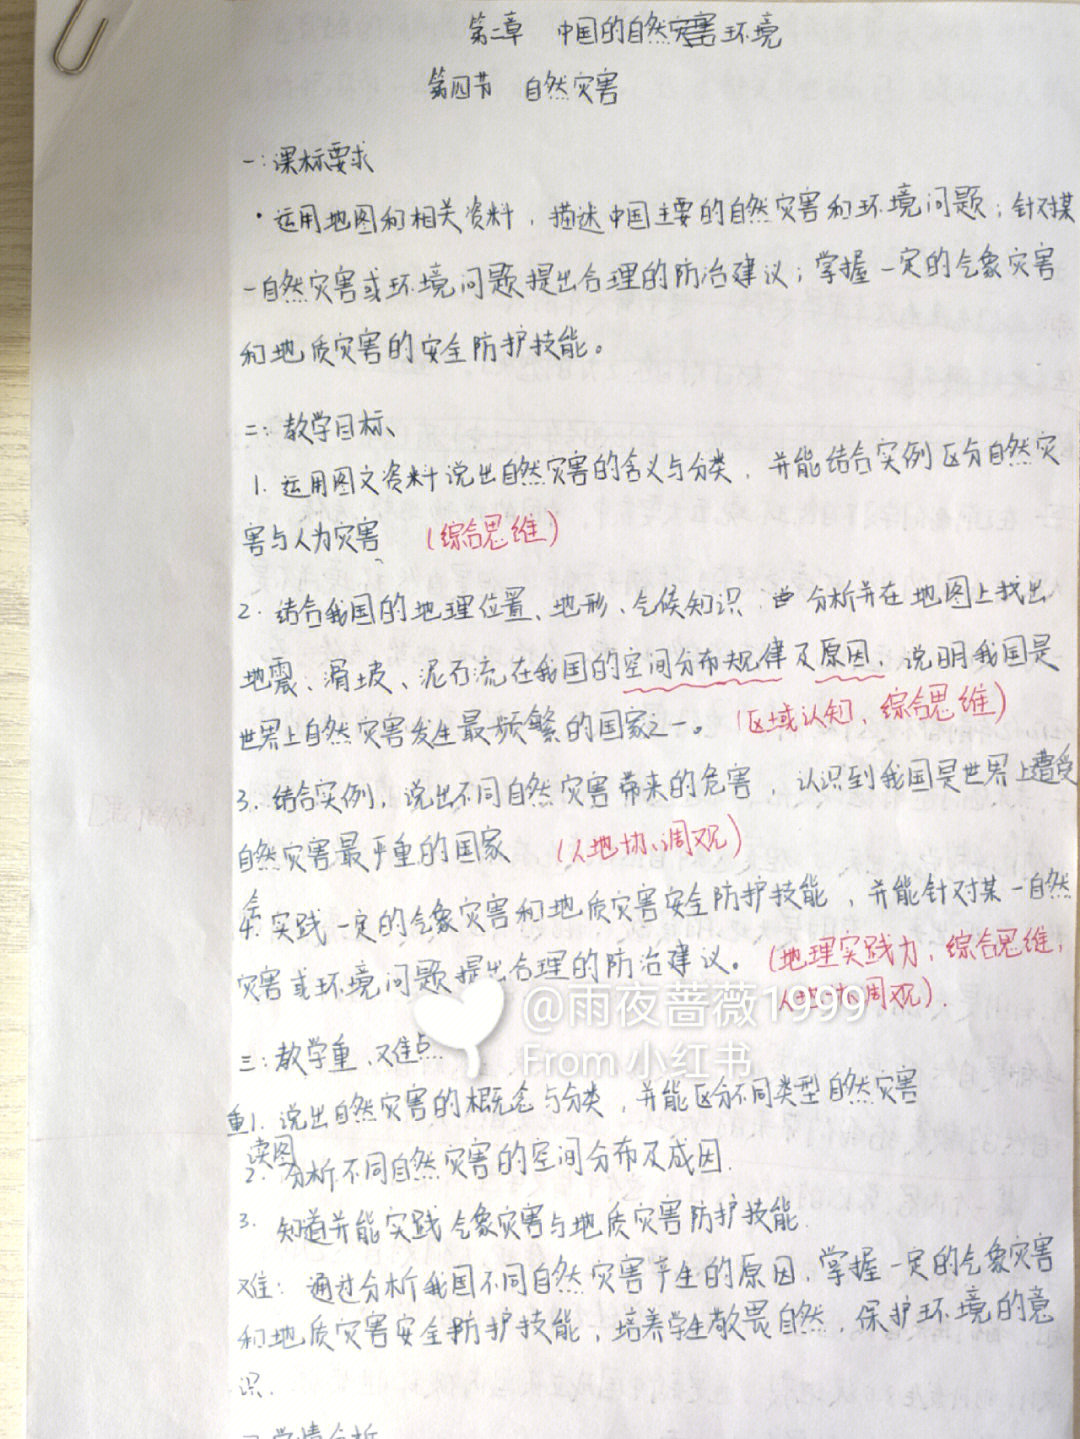 第二章 中国的自然灾害环境
第四节 自然灾害
一:课标要求
·运用地图和相关资料,描述中国主要的自然灾害和环境问题;针对某
一自然灾害或环境问题提出合理的防治建议;掌握一定的气象灾害
和地质灾害的安全防护技能。
二:教学目标、
1. 运用图文资料说出自然灾害的含义与分类,并能结合实例区分自然灾
害与人为灾害 (综合思维)
2. 结合我国的地理位置、地形、气候知识,分析并在地图上找出
地震、滑坡、泥石流在我国的空间分布规律及原因,说明我国是
世界上自然灾害发生最频繁的国家之一。(区域认知、综合思维)
3. 结合实例,说出不同自然灾害带来的危害,认识到我国是世界上遭受
自然灾害最严重的国家 (人地协调观)
4. 实践一定的气象灾害和地质灾害安全防护技能,并能针对某一自然
灾害或环境问题提出合理的防治建议。(地理实践力,综合思维,
人地协调观).
@雨夜蔷薇1999
From 小红书
三:教学重、难点
重1. 说出自然灾害的概念与分类,并能区分不同类型自然灾害
读图
2. 分析不同自然灾害的空间分布及成因.
3. 知道并能实践气象灾害与地质灾害防护技能.
难: 通过分析我国不同自然灾害产生的原因,掌握一定的气象灾害
和地质灾害安全防护技能,培养学生敬畏自然,保护环境的意
识.
学情分析